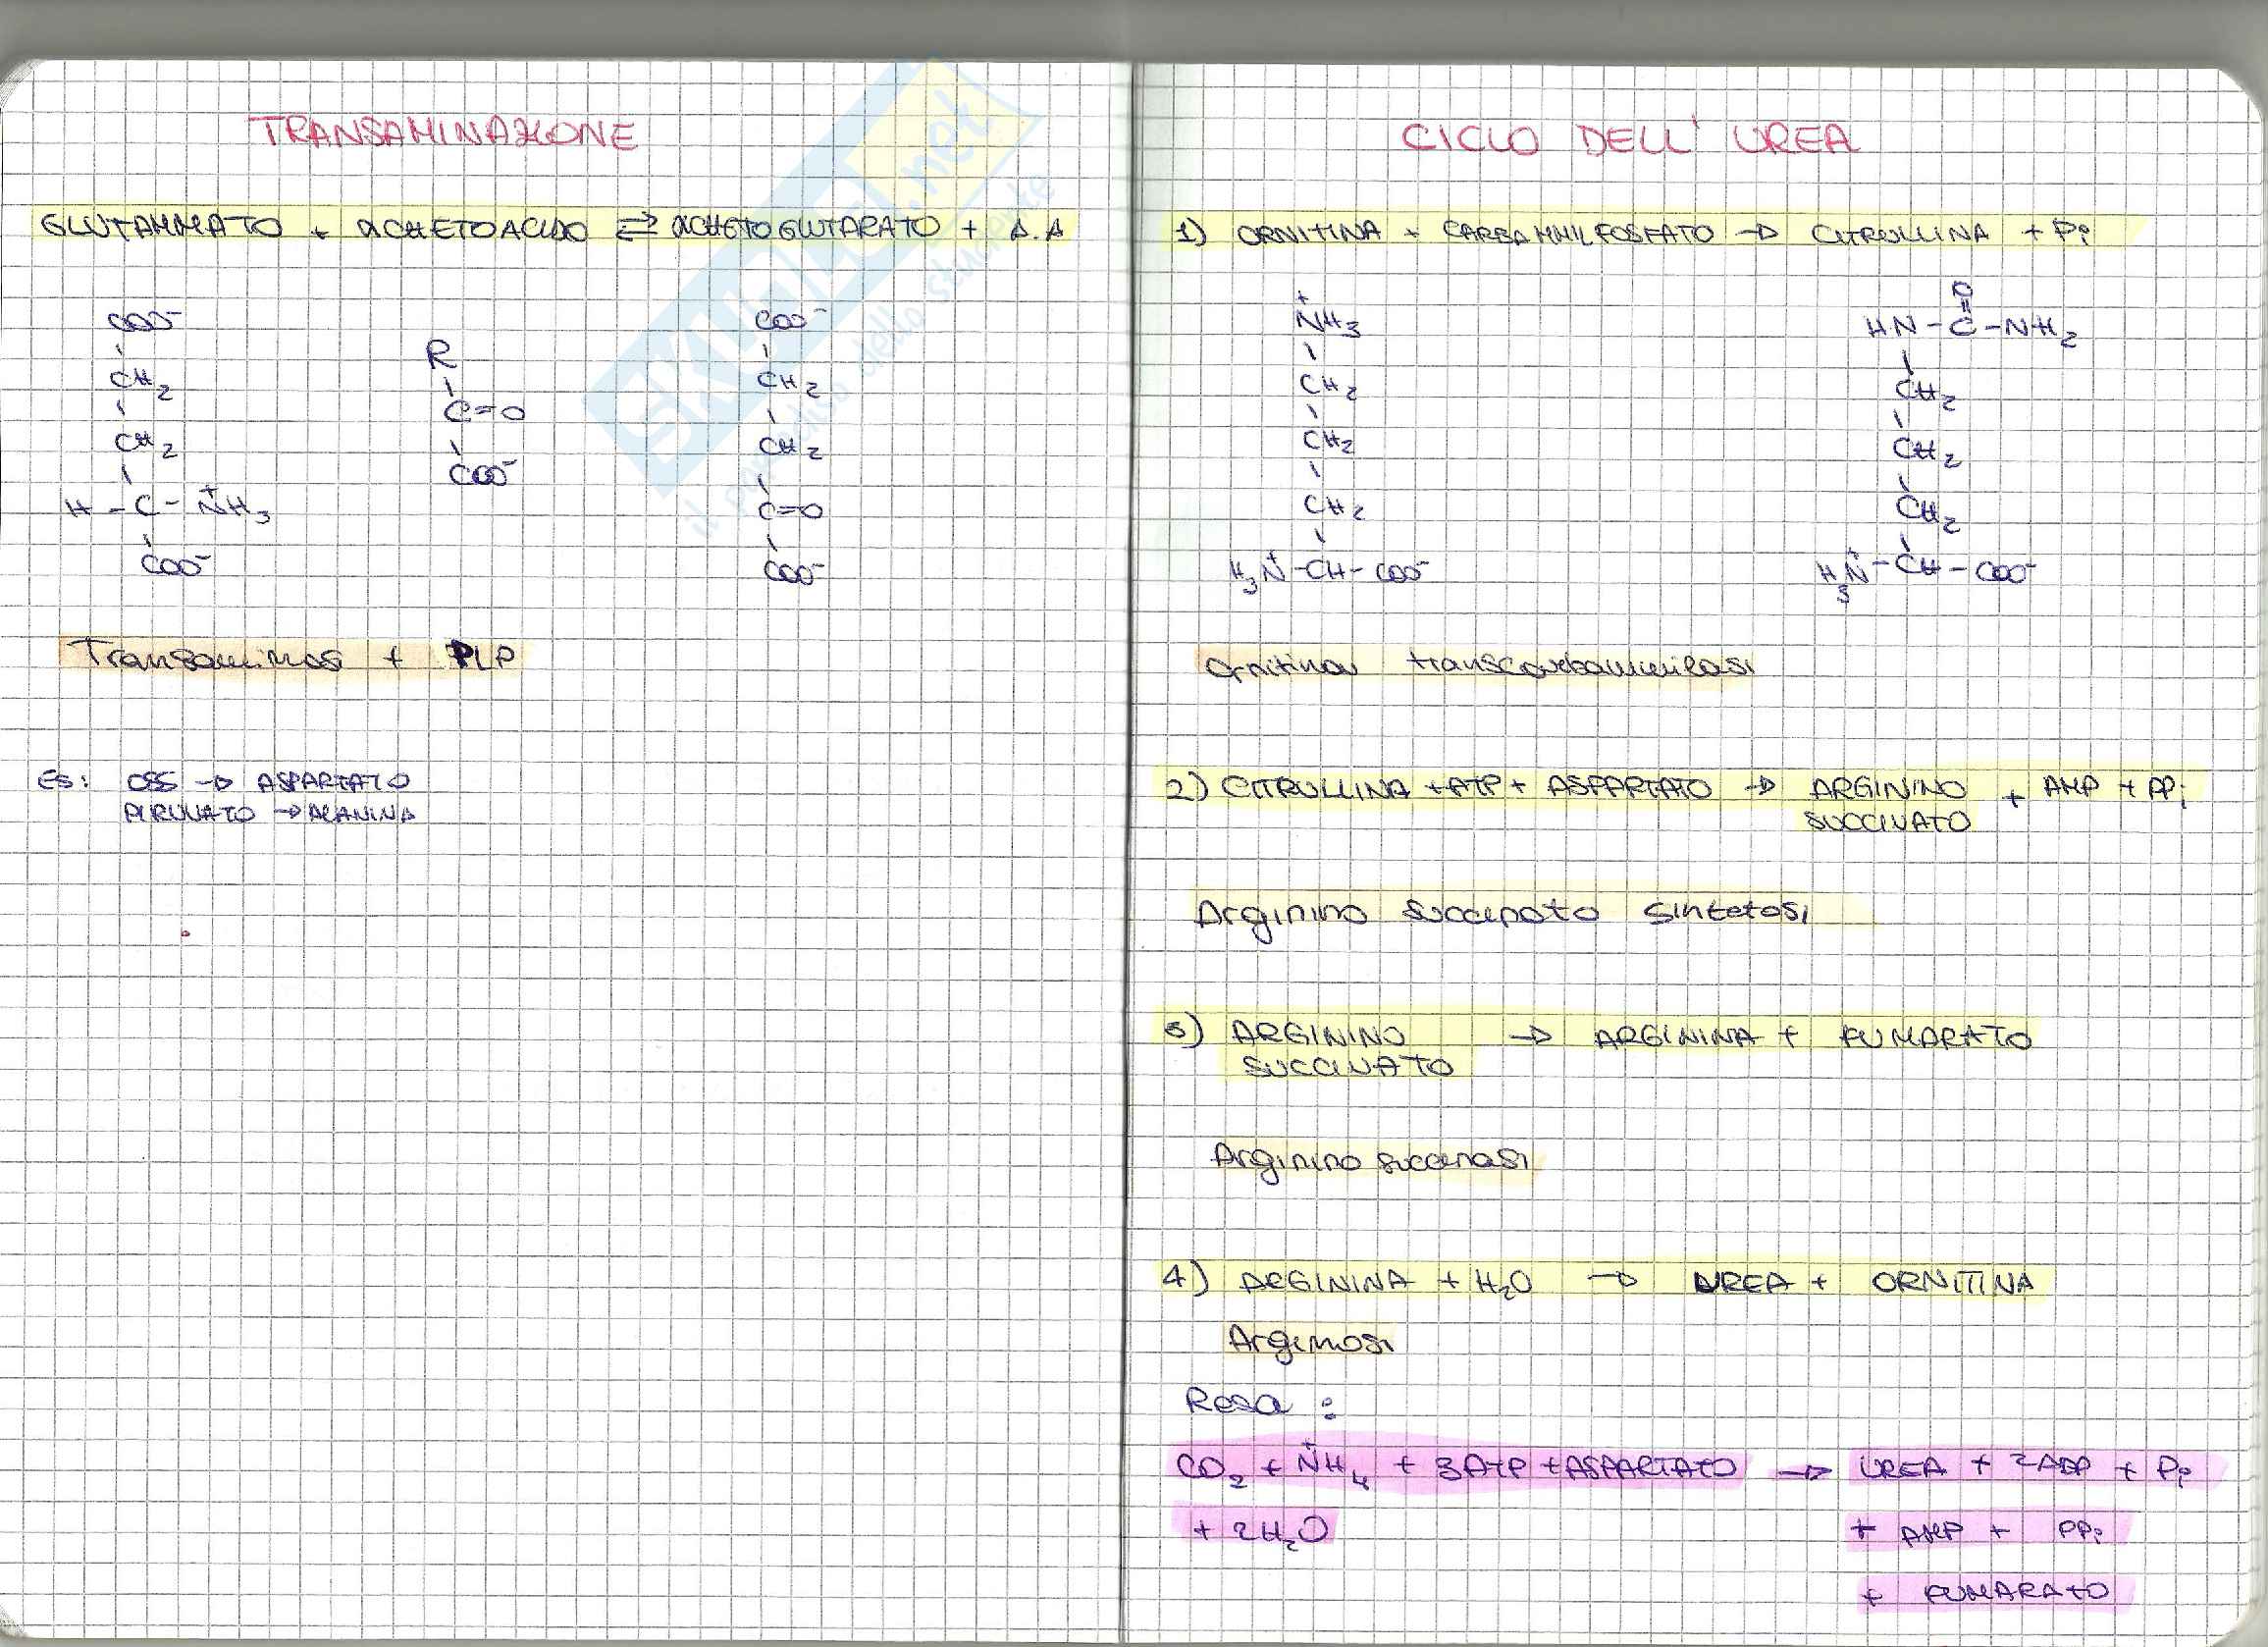 TRANSAMINAZIONE
GLUTAMMATO + αCHETOACIDO ⇄ αCHETOGLUTARATO + A.A
COO⁻
CH₂
CH₂
H - C - N⁺H₃
COO⁻
R
C=O
COO⁻
COO⁻
CH₂
CH₂
C=O
COO⁻
Transaminasi + PLP
ES: OSS → ASPARTATO
PIRUVATO → ALANINA
SKUOLA.net
il paradiso dello studente
CICLO DELL' UREA
1) ORNITINA + CARBAMMILFOSFATO → CITRULLINA + Pi
N⁺H₃
CH₂
CH₂
CH₂
H₃N⁺ - CH - COO⁻
O
HN - C - NH₂
CH₂
CH₂
CH₂
H₃N⁺ - CH - COO⁻
Ornitina transcarbammilasi
2) CITRULLINA + ATP + ASPARTATO → ARGININO + AMP + PPi
SUCCINATO
Arginino succinato sintetasi
3) ARGININO → ARGININA + FUMARATO
SUCCINATO
Arginino succinasi
4) ARGININA + H₂O → UREA + ORNITINA
Arginasi
Resa :
CO₂ + N⁺H₄ + 3ATP + ASPARTATO → UREA + 2ADP + Pi
+ 2H₂O + AMP + PPi
+ FUMARATO